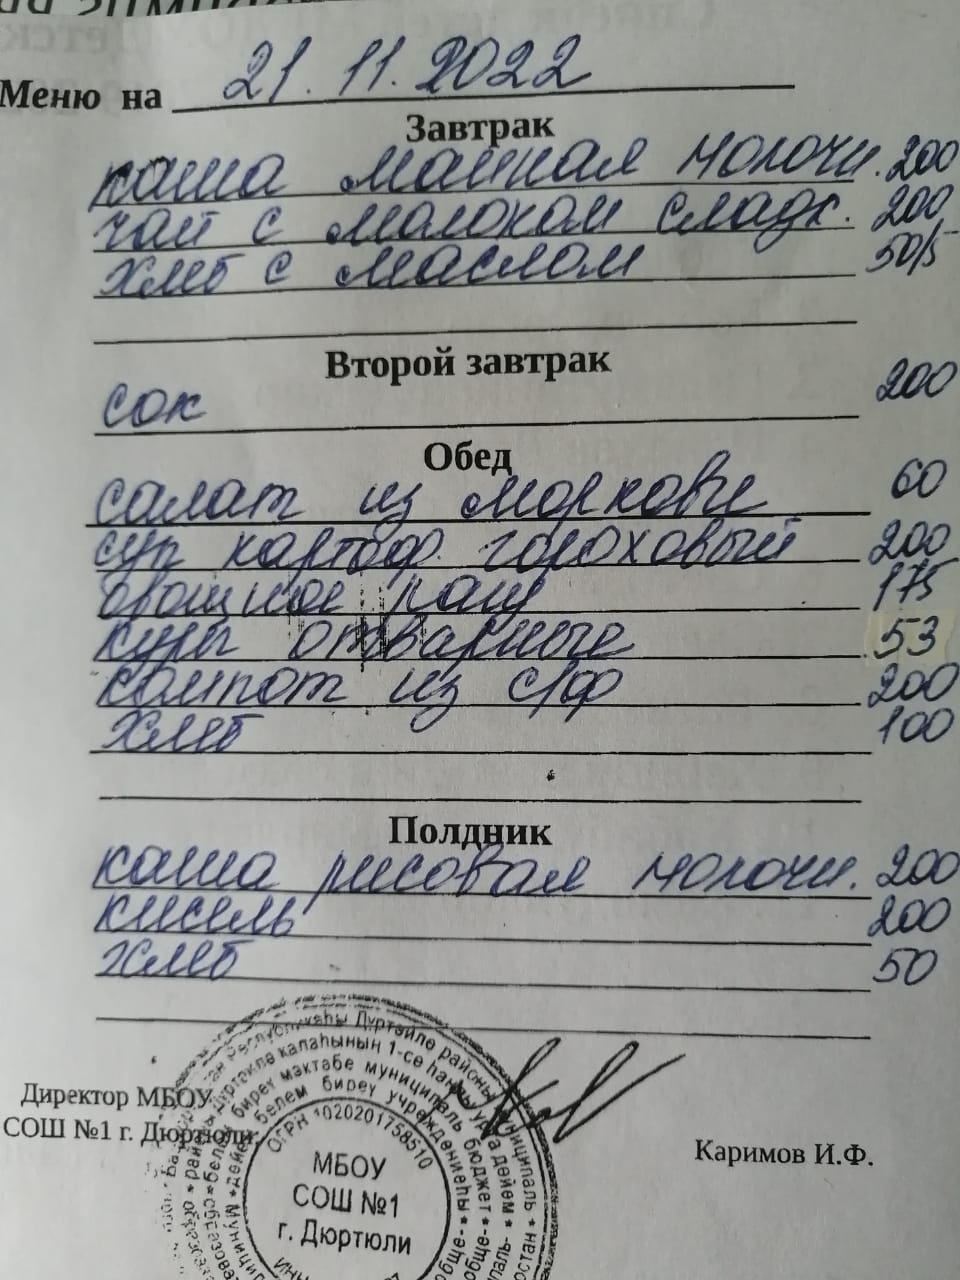 Меню на 21.11.2022
Завтрак
каша манная молочн. 200
чай с молоком сладк. 200
хлеб с маслом 50/5
Второй завтрак
сок 200
Обед
салат из моркови 60
суп картоф. гороховый 200
овощное рагу 175
куры отварные 53
компот из с/ф 200
хлеб 100
Полдник
каша рисовая молочн. 200
кисель 200
хлеб 50
Директор МБОУ
СОШ №1 г. Дюртюли
Каримов И.Ф.
Республикаһы Дүртөйлө районы муниципаль
ҡалаһының 1-се һанлы урта дөйөм
белем биреү мәктәбе муниципаль бюджет
дөйөм белем биреү учреждениеһы
ОГРН 1020201758510
МБОУ
СОШ №1
г. Дюртюли